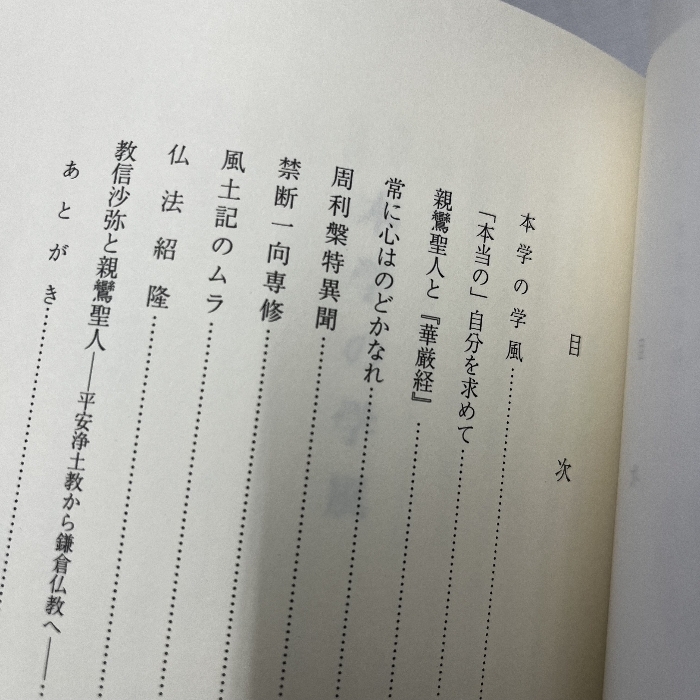 目次
本学の学風……………………
「本当の」自分を求めて……………………
親鸞聖人と『華厳経』……………………
常に心はのどかなれ……………………
周利槃特異聞……………………
禁断一向専修……………………
風土記のムラ……………………
仏法紹隆……………………
教信沙弥と親鸞聖人――平安浄土教から鎌倉仏教へ――
あとがき……………………